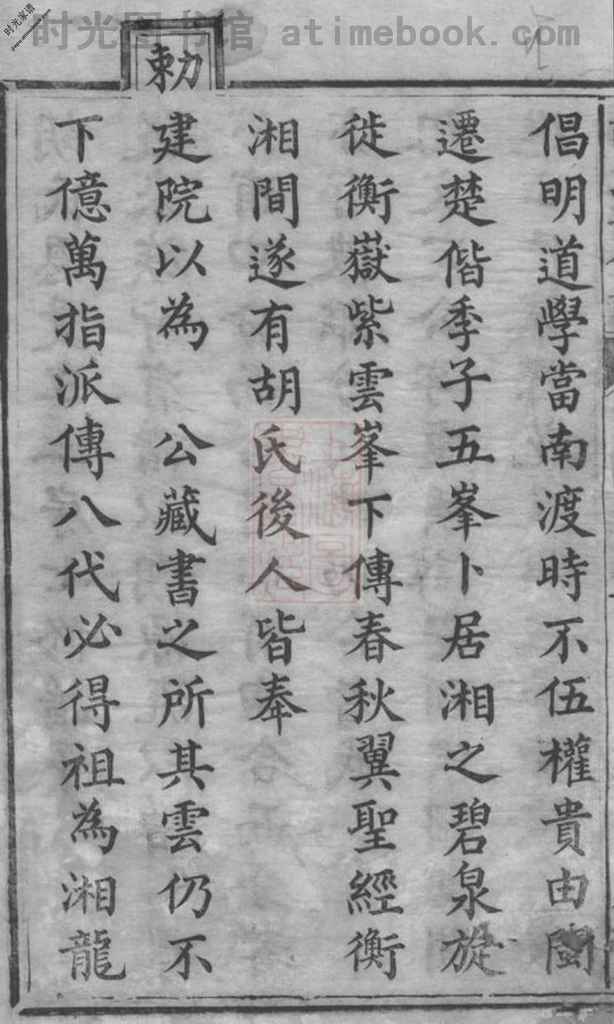 时光图书馆 atimebook.com
时光家谱
倡明道學當南渡時不伍權貴由閩
遷楚偕季子五峯卜居湘之碧泉旋
徙衡嶽紫雲峯下傳春秋翼聖經衡
湘間遂有胡氏後人皆奉
勅
建院以為 公藏書之所其雲仍不
下億萬指派傳八代必得祖為湘龍